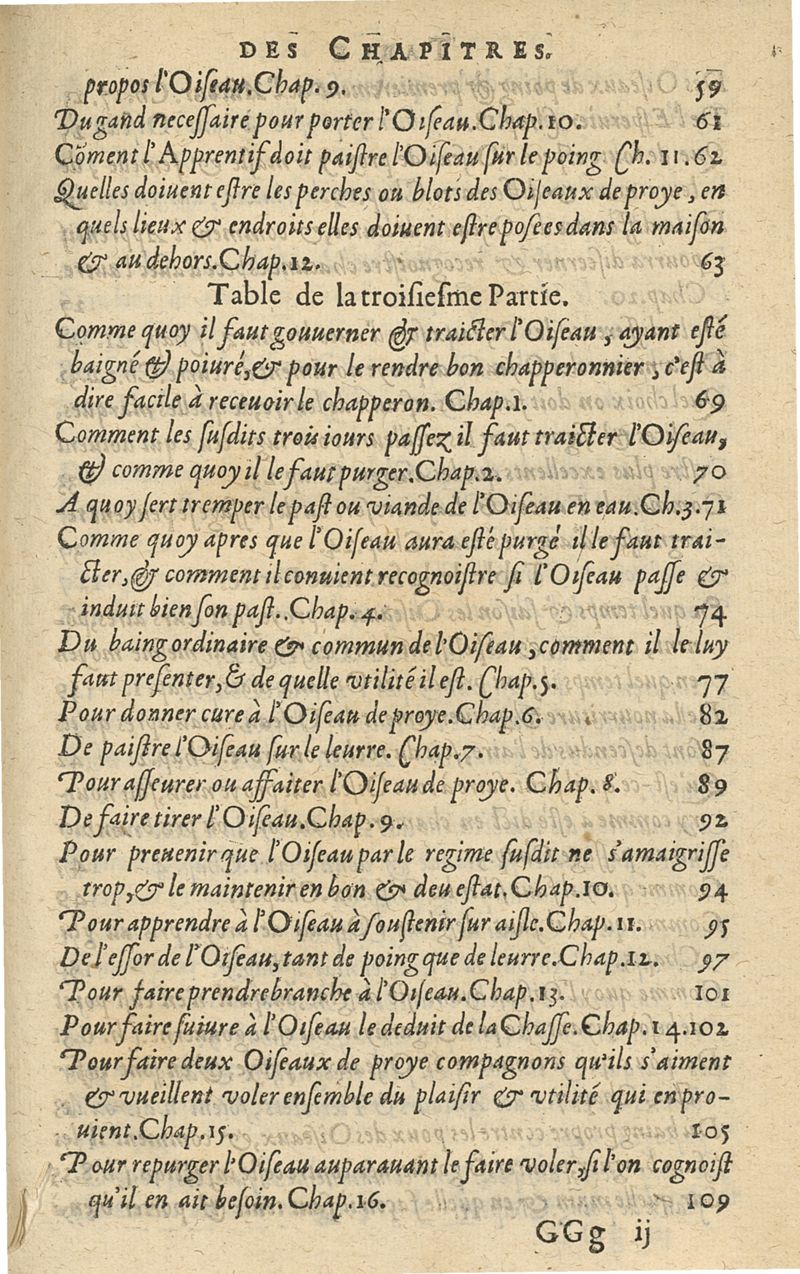 DES CHAPITRES.
propos l'Oiſeau.Chap. 9. 59
Du gand neceſſaire pour porter l'Oiſeau.Chap.10. 61
Cõment l'Apprentif doit paiſtre l'Oiſeau ſur le poing Ch. 11.62
Quelles doiuent eſtre les perches ou blots des Oiſeaux de proye, en
quels lieux & endroits elles doiuent eſtre poſees dans la maiſon
& au dehors.Chap.12. 63
Table de la troiſieſme Partie.
Comme quoy il faut gouuerner & traicter l'Oiſeau, ayant eſté
baigné & poiuré,& pour le rendre bon chapperonnier, c'eſt à
dire facile à receuoir le chapperon. Chap.1. 69
Comment les ſuſdits trois iours paſſez il faut traicter l'Oiſeau,
& comme quoy il le faut purger.Chap.2. 70
A quoy ſert tremper le paſt ou viande de l'Oiſeau en eau.Ch.3.71
Comme quoy apres que l'Oiſeau aura eſté purgé il le faut trai-
cter,& comment il conuient recognoiſtre ſi l'Oiſeau paſſe &
induit bien ſon paſt..Chap.4. 74
Du baing ordinaire & commun de l'Oiſeau, comment il le luy
faut preſenter,& de quelle vtilité il eſt. Chap.5. 77
Pour donner cure à l'Oiſeau de proye.Chap.6. 82
De paiſtre l'Oiſeau ſur le leurre. Chap.7. 87
Pour aſſeurer ou affaiter l'Oiſeau de proye. Chap. 8. 89
De faire tirer l'Oiſeau.Chap. 9. 92
Pour preuenir que l'Oiſeau par le regime ſuſdit ne s'amaigriſſe
trop,& le maintenir en bon & deu eſtat.Chap.10. 94
Pour apprendre à l'Oiſeau à ſouſtenir ſur aiſle.Chap.11. 95
De l'eſſor de l'Oiſeau,tant de poing que de leurre.Chap.12. 97
Pour faire prendre branche à l'Oiſeau.Chap.13. 101
Pour faire ſuiure à l'Oiſeau le deduit de la Chaſſe.Chap.14.102
Pour faire deux Oiſeaux de proye compagnons qu'ils s'aiment
& vueillent voler enſemble du plaiſir & vtilité qui en pro-
uient.Chap.15. 105
Pour repurger l'Oiſeau auparauant le faire voler,ſi l'on cognoiſt
qu'il en ait beſoin.Chap.16. 109
GGg ij